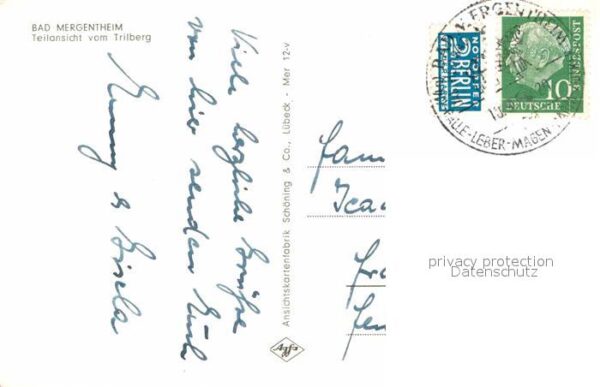 BAD MERGENTHEIM
Teilansicht vom Trilberg
Viele herzliche Grüße
von hier senden Euch
& Gisela
Ansichtskartenfabrik Schöning & Co., Lübeck - Mer 12-v
NOTOPFER
2 BERLIN
STEUERMARKE
10
DEUTSCHE
BUNDESPOST
BAD MERGENTHEIM
GALLE-LEBER-MAGEN
Fam
privacy protection
Datenschutz